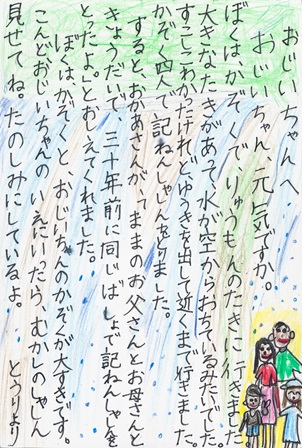 おじいちゃんへ
おじいちゃん、元気ですか。
ぼくは、かぞくで りゅうもんのたきに行きました。
大きなたきがあって、水が空からおちているみたいでした。
すこしこわかったけれど、ゆうきを出して近くまで行きました。
かぞく四人で記ねんしゃしんをとりました。
すると、おかあさんが、「ままのお父さんとお母さんと
きょうだいで、三十年前に同じばしょで記ねんしゃしんを
とったよ。」とおしえてくれました。
ぼくは、かぞくと、おじいちゃんのかぞくが大すきです。
こんどおじいちゃんのいえにいったら、むかしのしゃしん
見せてね。たのしみにしているよ。 とうりより